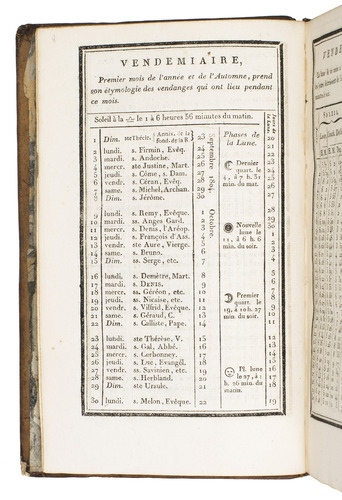 VENDEMIAIRE,
Premier mois de l'année et de l'Automne, prend
son étymologie des vendanges qui ont lieu pendant
ce mois.
Soleil à la le 1 à 6 heures 56 minutes du matin.
1 Dim. ste Thècle. Anniv. de la fond. de la R 23
2 lundi. s. Firmin, Evêq. 24
3 mardi. s. Andoche. 25
4 mercr. ste Justine, Mart. 26
5 jeudi. s. Côme, s. Dam. 27
6 vendr. s. Céran, Evêq. 28
7 same. s. Michel, Archan. 29
8 Dim. s. Jérôme. 30
9 lundi. s. Remy, Evêque. 1
10 mardi. ss. Anges Gard. 2
11 mercr. s. Denis, l'Aréop. 3
12 jeudi. s. François d'Ass. 4
13 vendr. ste Aure, Vierge. 5
14 same. s. Bruno. 6
15 Dim. ss. Serge, etc. 7
16 lundi. s. Demètre, Mart. 8
17 mardi. s. DENIS. 9
18 mercr. ss. Géréon, etc. 10
19 jeudi. ss. Nicaise, etc. 11
20 vendr. s. Vilfrid, Evêque 12
21 same. s. Géraud, C. 13
22 Dim. s. Calliste, Pape. 14
23 lundi. ste Thérèse, V. 15
24 mardi. s. Gal, Abbé. 16
25 mercr. s. Cerbonney. 17
26 jeudi. s. Luc, Evangél. 18
27 vendr. ss. Savinien, etc. 19
28 same. s. Herbland. 20
29 Dim. ste Ursule. 21
30 lundi. s. Melon, Evêque. 22
Septembre 1804.
Octobre.
Phases de
la Lune.
Dernier
quart. le
4, à 7 h. 31
min. du mat.
Nouvelle
lune le
11, à 6 h. 6
min. du soir.
Premier
quart. le
19, à 10 h. 27
min. du soir.
Pl. lune
le 27, à 1
h. 26 min. du
matin.
Jours de
la Lune.
20
21
22
23
24
25
26
27
28
29
30
1
2
3
4
5
6
7
8
9
10
11
12
13
14
15
16
17
18
19
VENDE